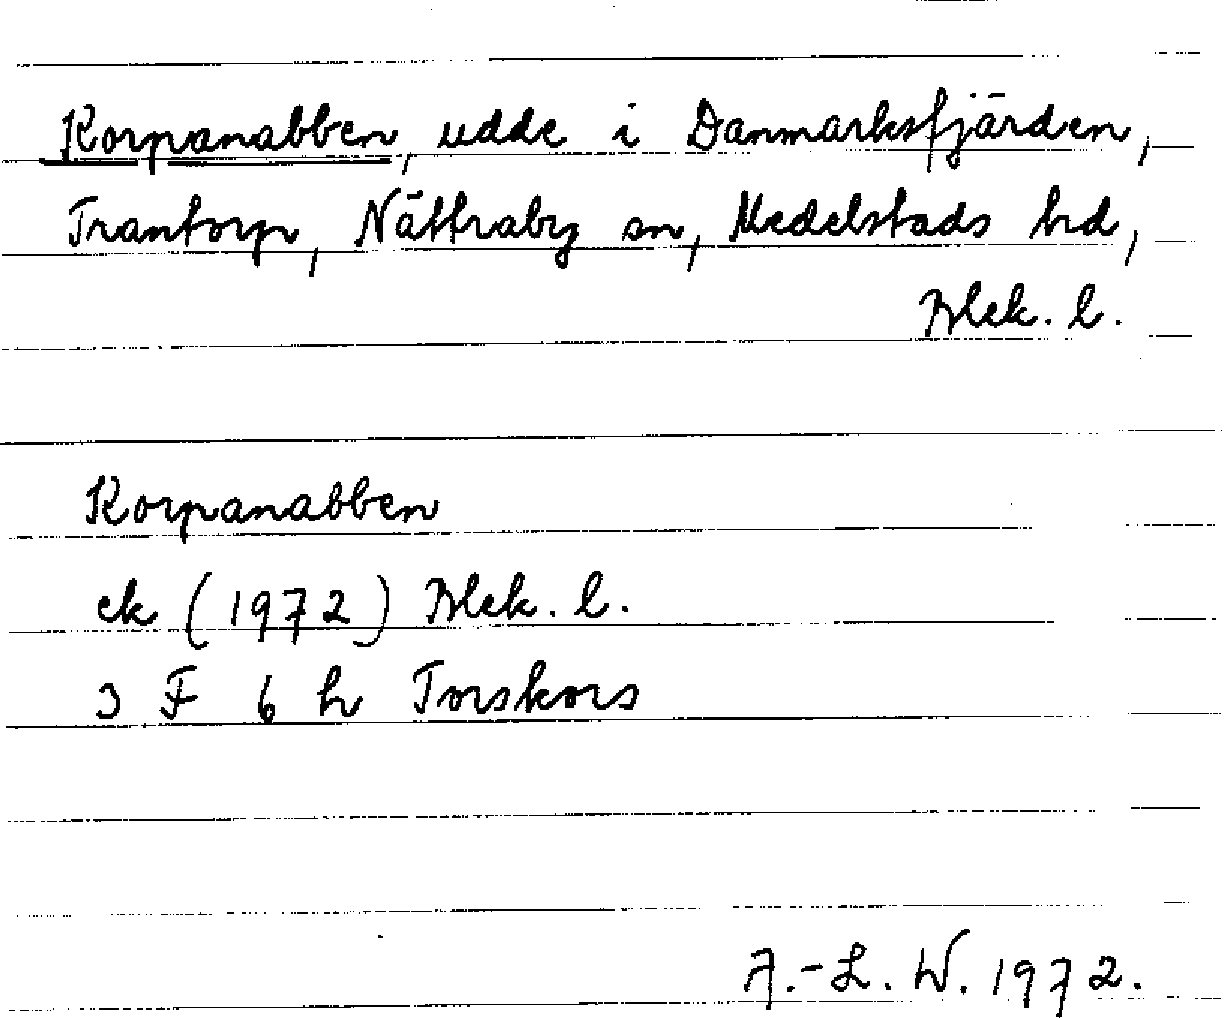 Korpanabben, udde i Danmarksfjärden,
Trantorp, Nättraby sn, Medelstads hd,
Blek. l.
Korpanabben
ek (1972) Blek. l.
3 F 6 h Torskors
A.-L. W. 1972.